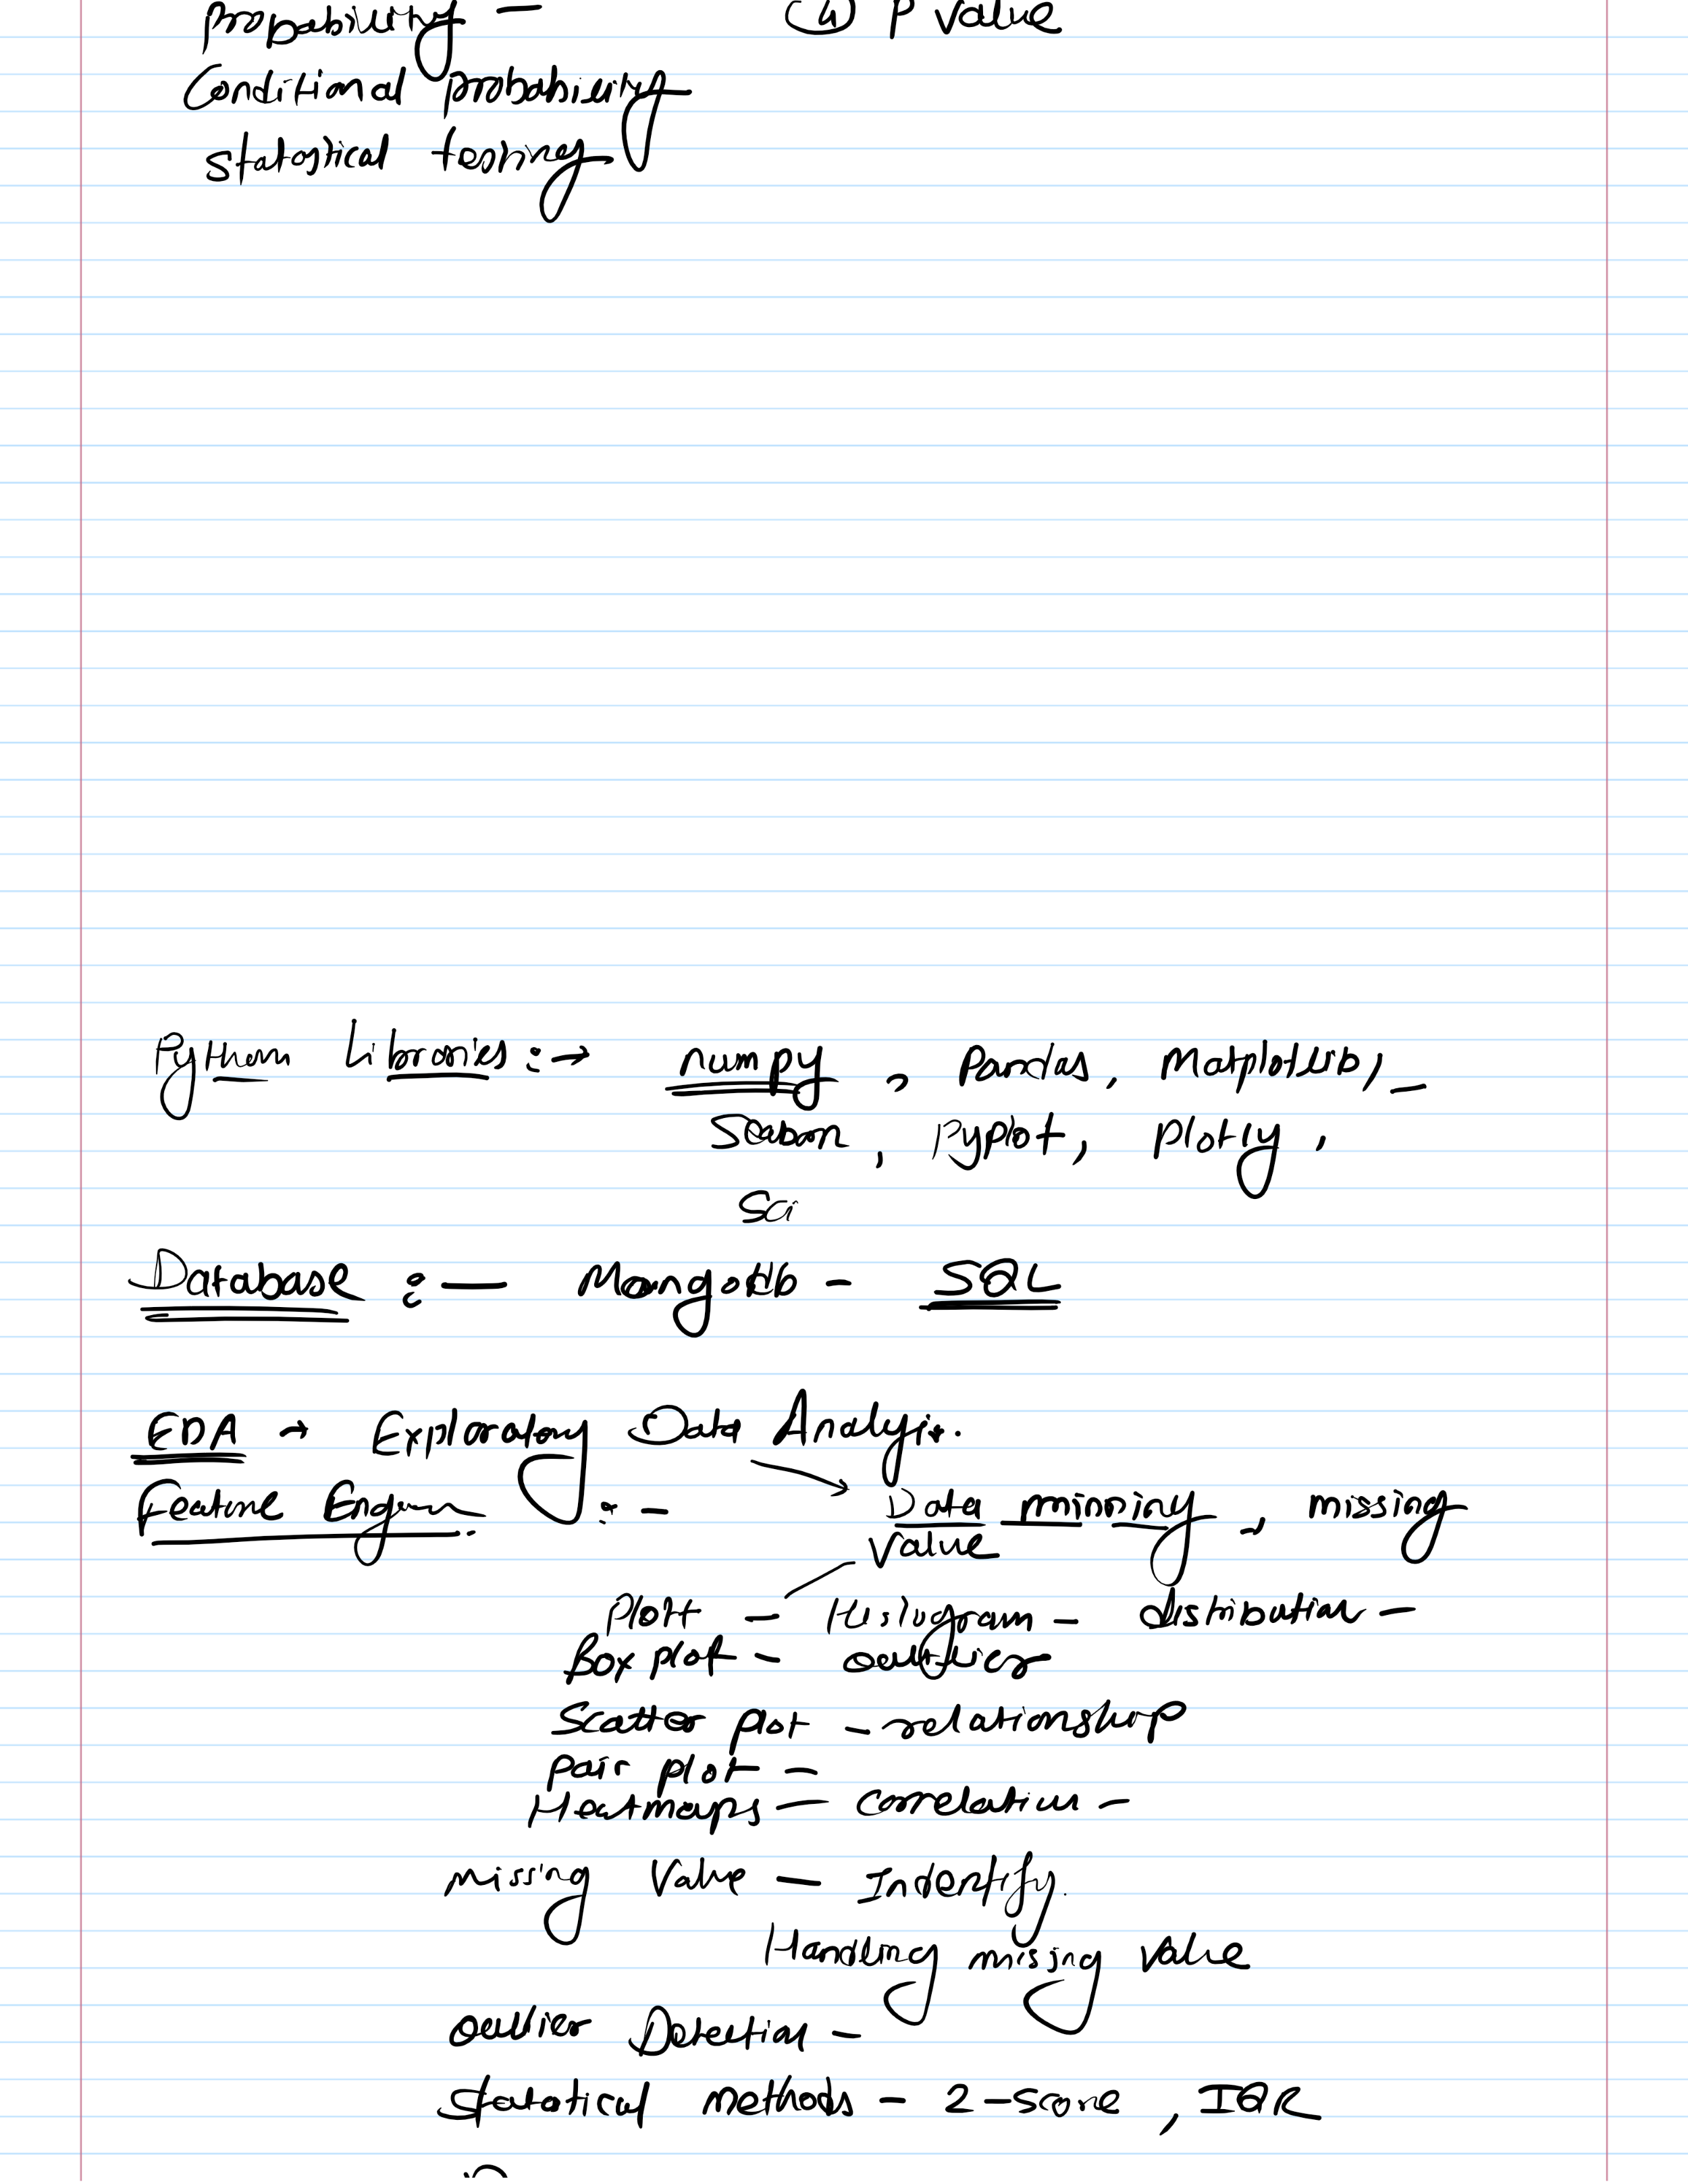 probability — (4) P value
Conditional probability
statastical testing
Python Libraries :→ numpy , Pandas, Matplotlib, _
Seabon, Pyplot, Plotly,
Sci
Database :— Mongodb - SQL
EDA → Exploratory Data Analysis.
Feature :- Data minniny, missing
Value
Plott — Histogram — distribution —
Box plot — outliers
Scatter plot — relationship
Pair plot —
Heatmaps — correlation —
missing Value — Indentify.
Handling missing value
outlier Detection —
Statatical methods — Z-score, IQR